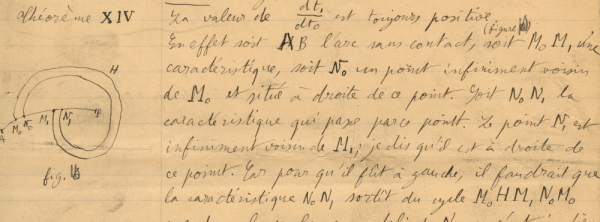 Théorème XIV
La valeur de dt₁/dt₀ est toujours positive
(figure 6)
En effet soit AB l'arc sans contact, soit M₀M₁ une
caractéristique, soit N₀ un point infiniment voisin
de M₀ et situé à droite de ce point. Soit N₀N₁ la
caractéristique qui passe par ce point. Le point N₁ est
infiniment voisin de M₁; je dis qu'il est à droite de
ce point. Car pour qu'il fût à gauche, il faudrait que
la caractéristique N₀N₁ sortît du cycle M₀HM₁N₀M₀
H
A M₀ N₀ M₁ N₁ B
fig. 6